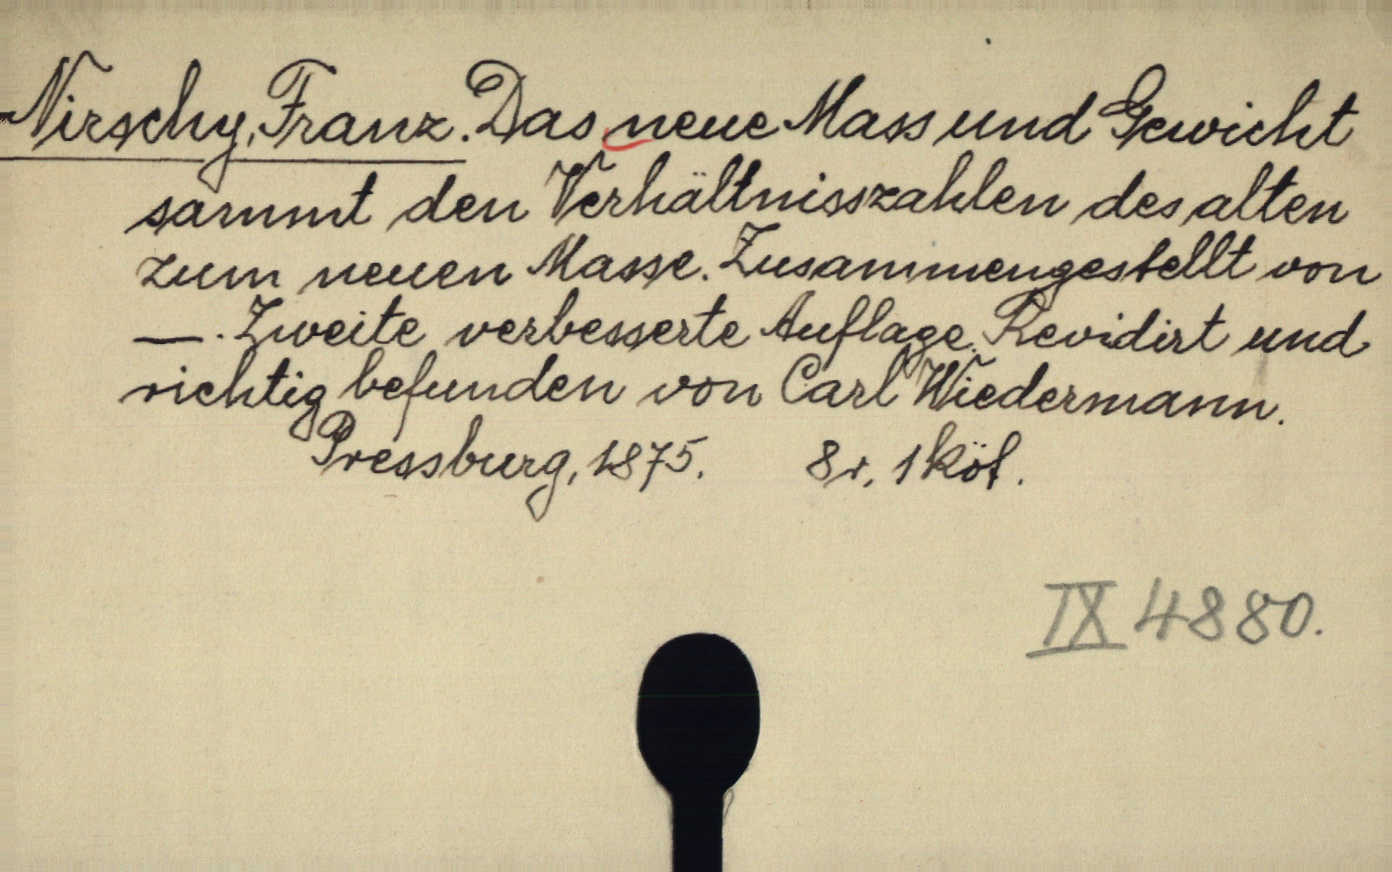 Nirschy, Franz. Das neue Mass und Gewicht
sammt den Verhältnisszahlen des alten
zum neuen Masse. Zusammengestellt von
—. Zweite verbesserte Auflage. Revidirt und
richtig befunden von Carl Wiedermann.
Pressburg, 1875. 8r, 1 köt.
IX 4880.